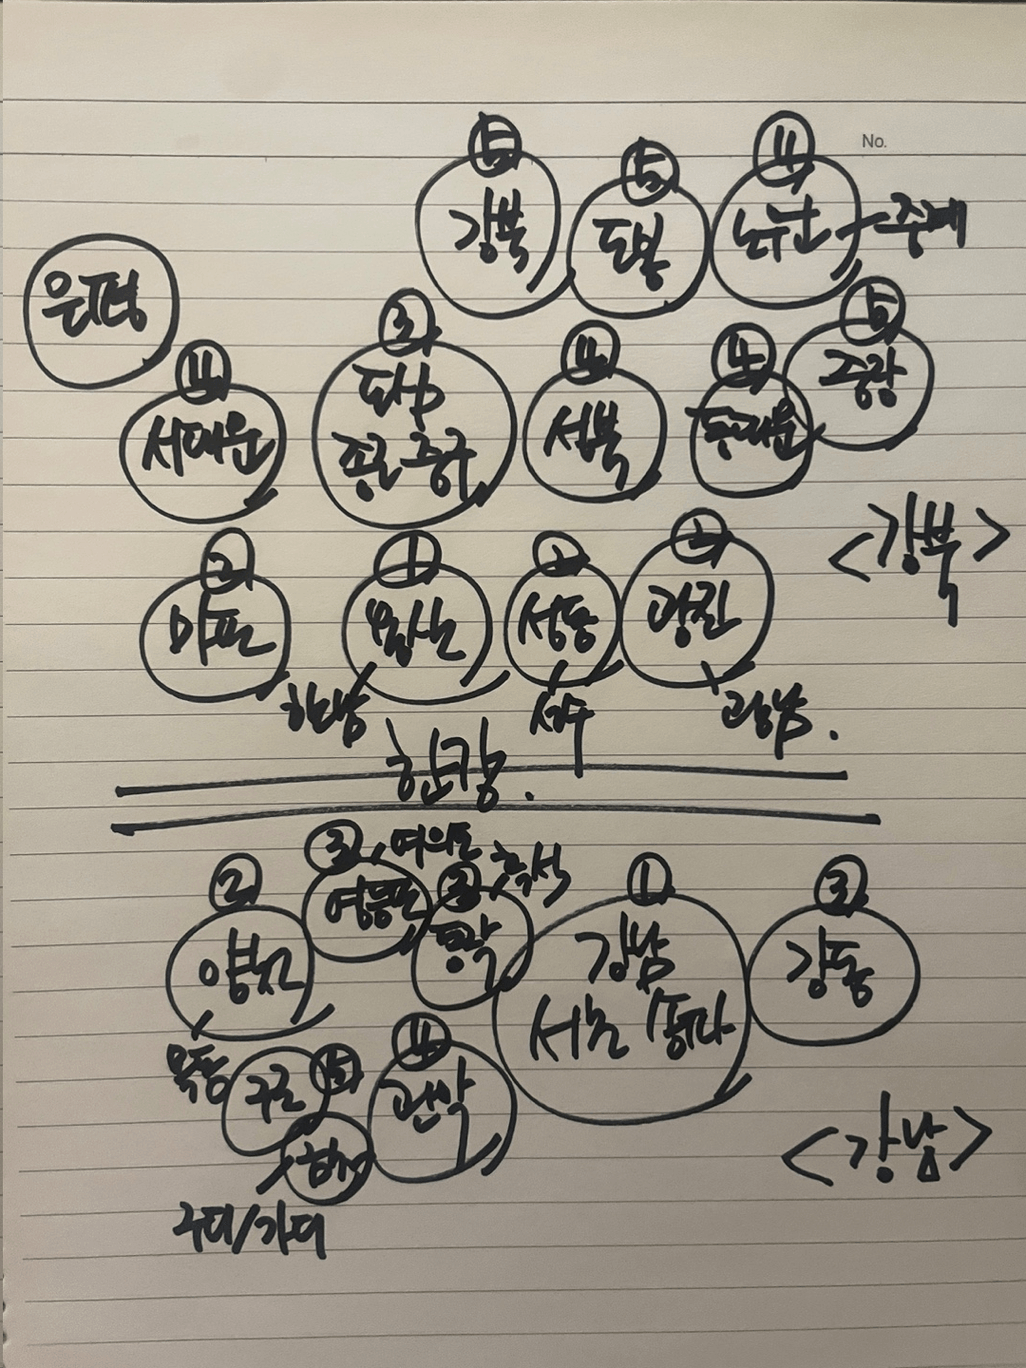 No.
⑤ ⑤ ④
강북 도봉 노원 중계
은평
③ ⑤
④ ④ ④
도심 중랑
서대문 종로 중구 성북 동대문
<강북>
② ① ② ②
마포 용산 성동 광진
한남 성수 광남.
한강.
③ 여의도 흑석
② ② ① ③
영등포
양천 동작 강남 강동
서초 송파
목동 ④
구로 ⑤ 관악
<강남>
구디/가디